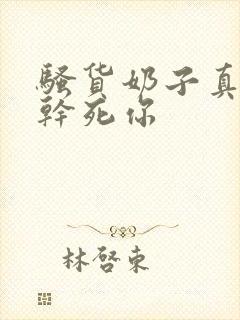 騷货奶子真
幹死你
林啓東